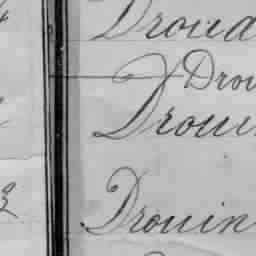 Droua
Drou
Drouin
3 Drouin